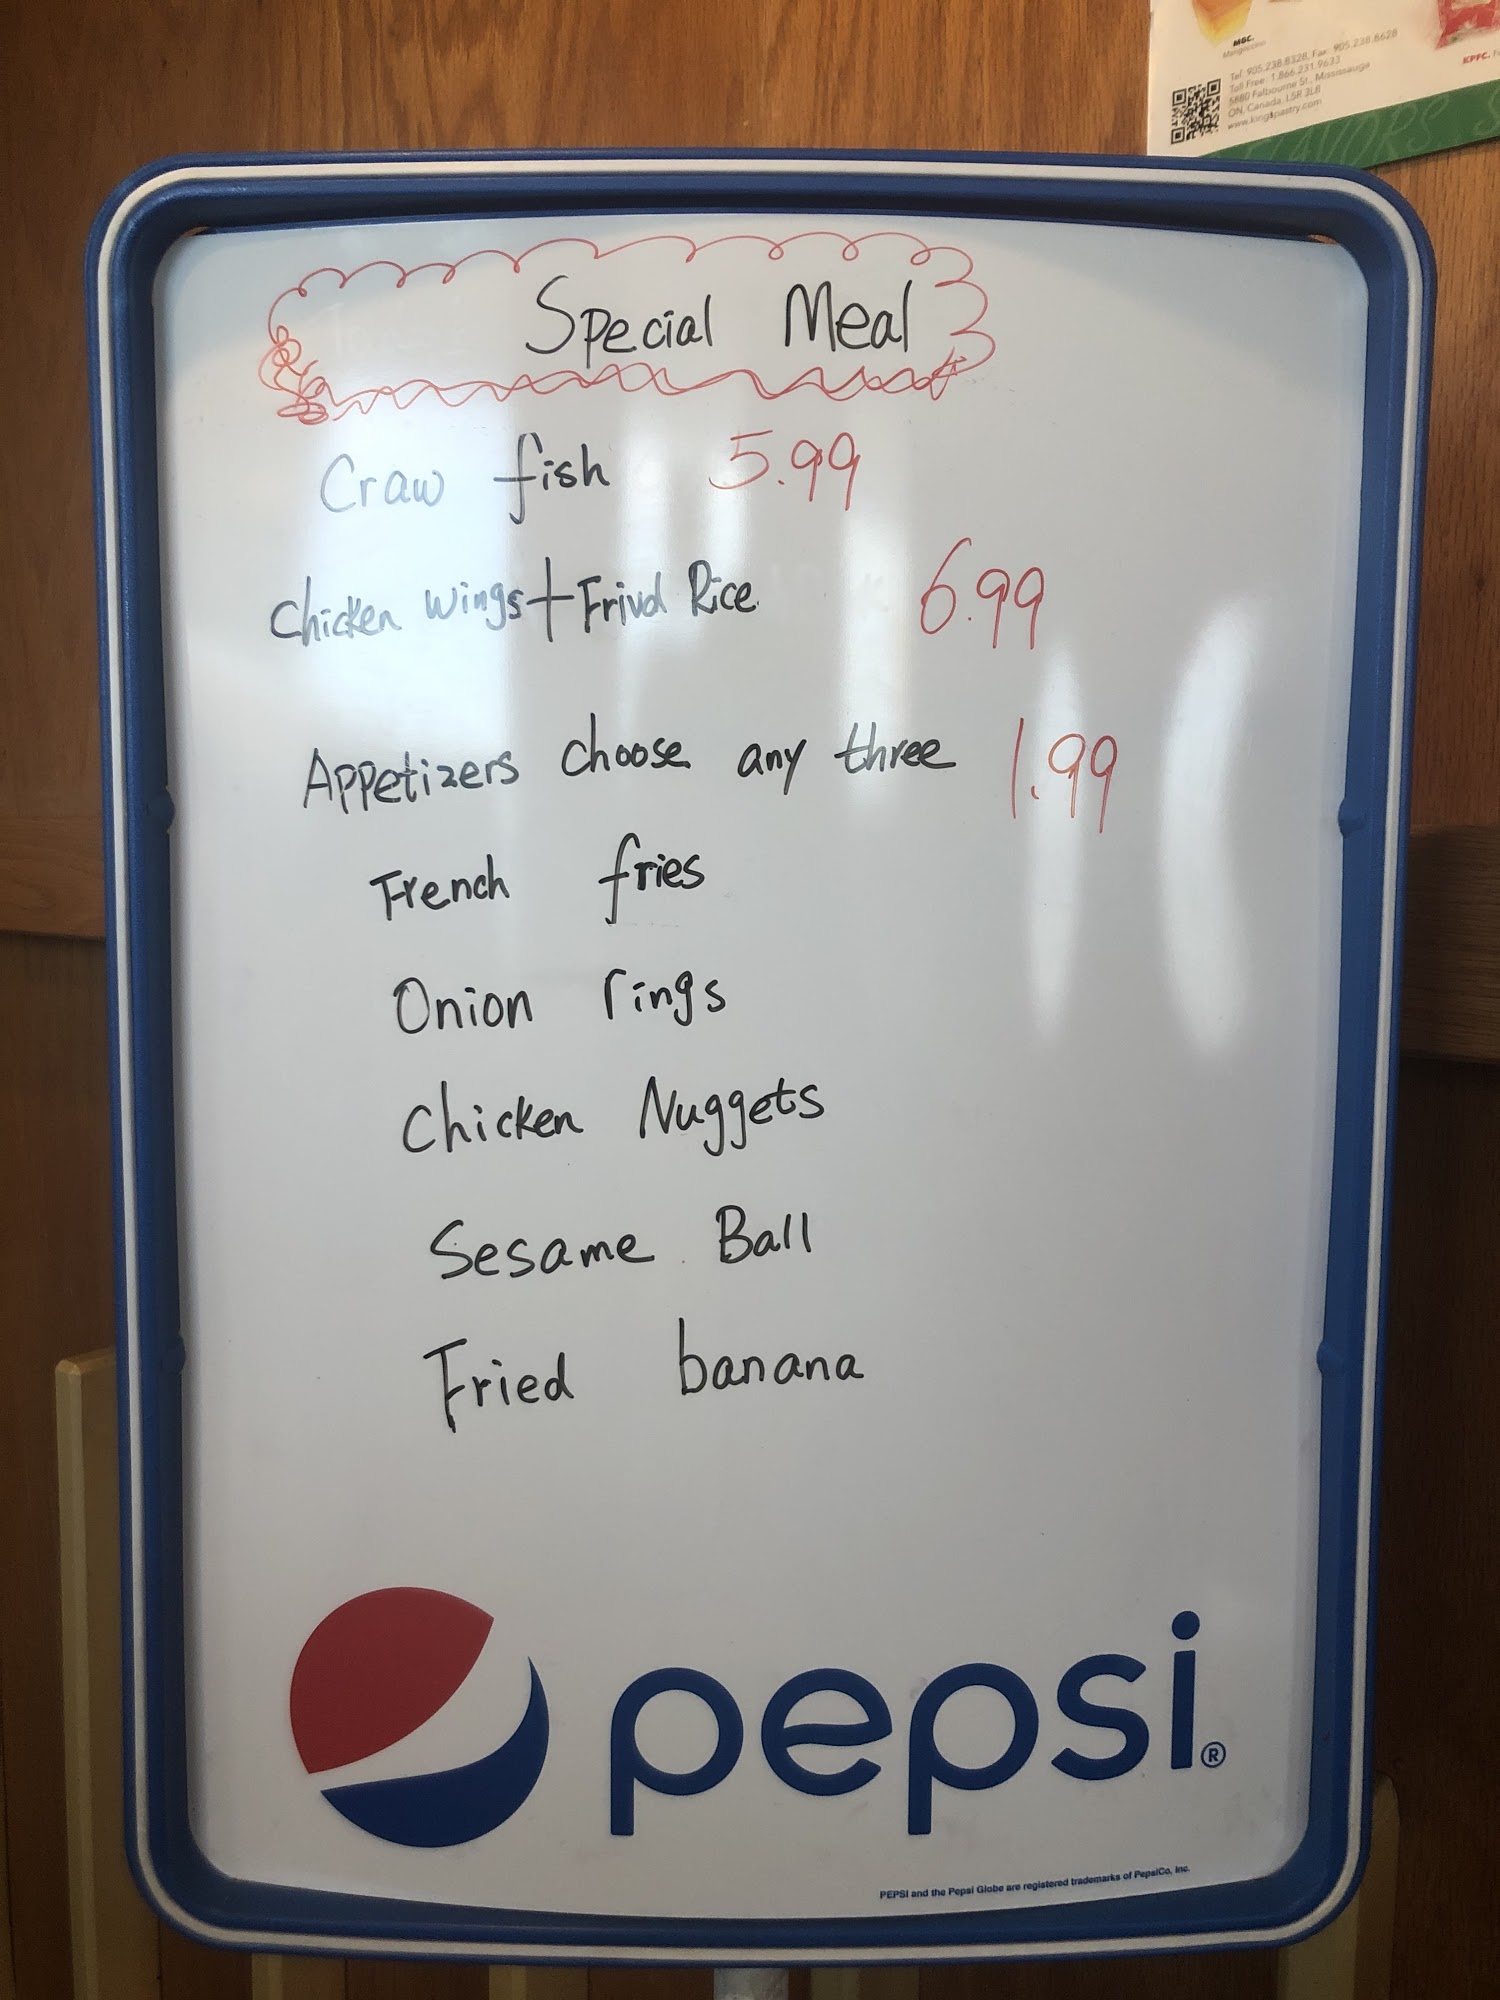 MGC.
Mangoccino
Tel: 905.238.8328, Fax: 905.238.8628
Toll Free: 1.866.231.9633
5880 Falbourne St., Mississauga
ON, Canada, L5R 3L8
www.kingspastry.com
KPFC.
Special Meal
Craw fish 5.99
Chicken Wings + Frivd Rice 6.99
Appetizers choose any three 1.99
French fries
Onion rings
Chicken Nuggets
Sesame Ball
Fried banana
pepsi®
PEPSI and the Pepsi Globe are registered trademarks of PepsiCo, Inc.